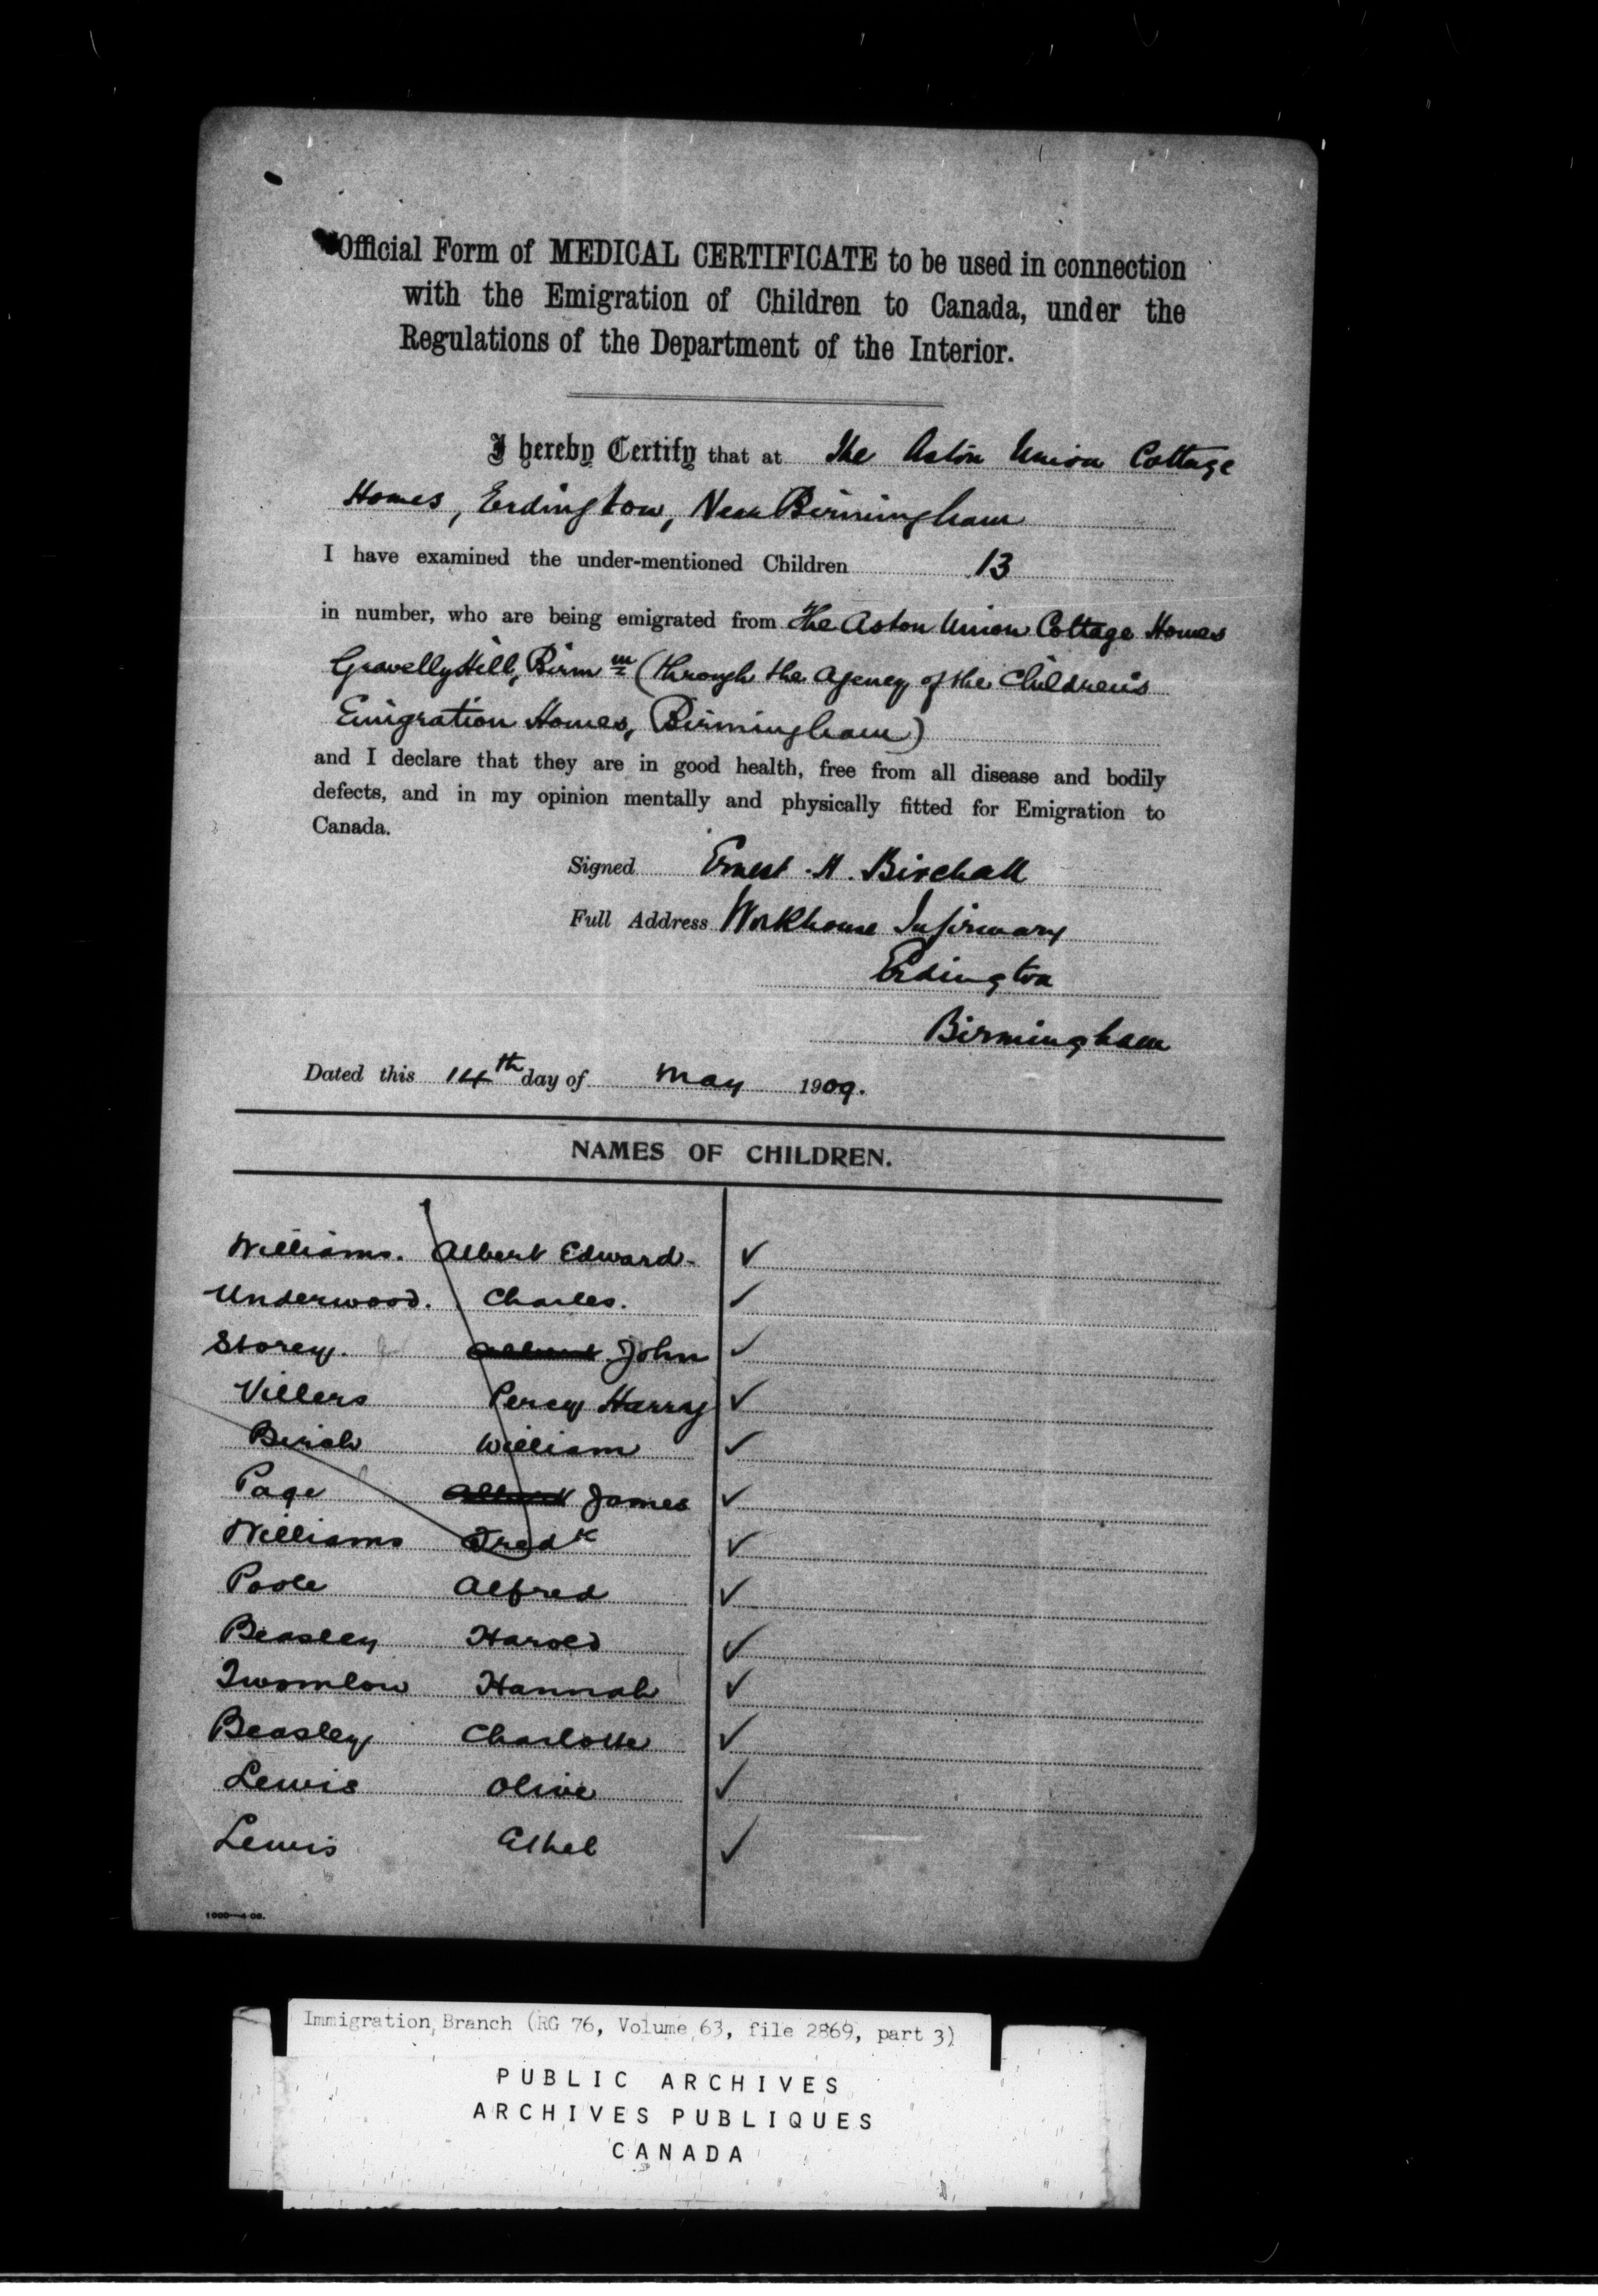 Official Form of MEDICAL CERTIFICATE to be used in connection
with the Emigration of Children to Canada, under the
Regulations of the Department of the Interior.
I hereby Certify that at The Aston Union Cottage
Homes, Erdington, Near Birmingham
I have examined the under-mentioned Children 13
in number, who are being emigrated from The Aston Union Cottage Homes
Gravelly Hill, Birm m (through the Agency of the Children's
Emigration Homes, Birmingham)
and I declare that they are in good health, free from all disease and bodily
defects, and in my opinion mentally and physically fitted for Emigration to
Canada.
Signed Ernest . H . Birchall
Full Address Workhouse Infirmary
Erdington
Birmingham
Dated this 14th day of May 1909.
NAMES OF CHILDREN.
Williams. Albert Edward- ✓
Underwood. Charles. ✓
Storey. John ✓
Villers Percy Harry ✓
Birch William ✓
Page James ✓
Williams Fredk ✓
Poole Alfred ✓
Beasley Harold ✓
Twomlow Hannah ✓
Beasley Charlotte ✓
Lewis Olive ✓
Lewis Ethel ✓
Immigration Branch (RG 76, Volume 63, file 2869, part 3)
PUBLIC ARCHIVES
ARCHIVES PUBLIQUES
CANADA